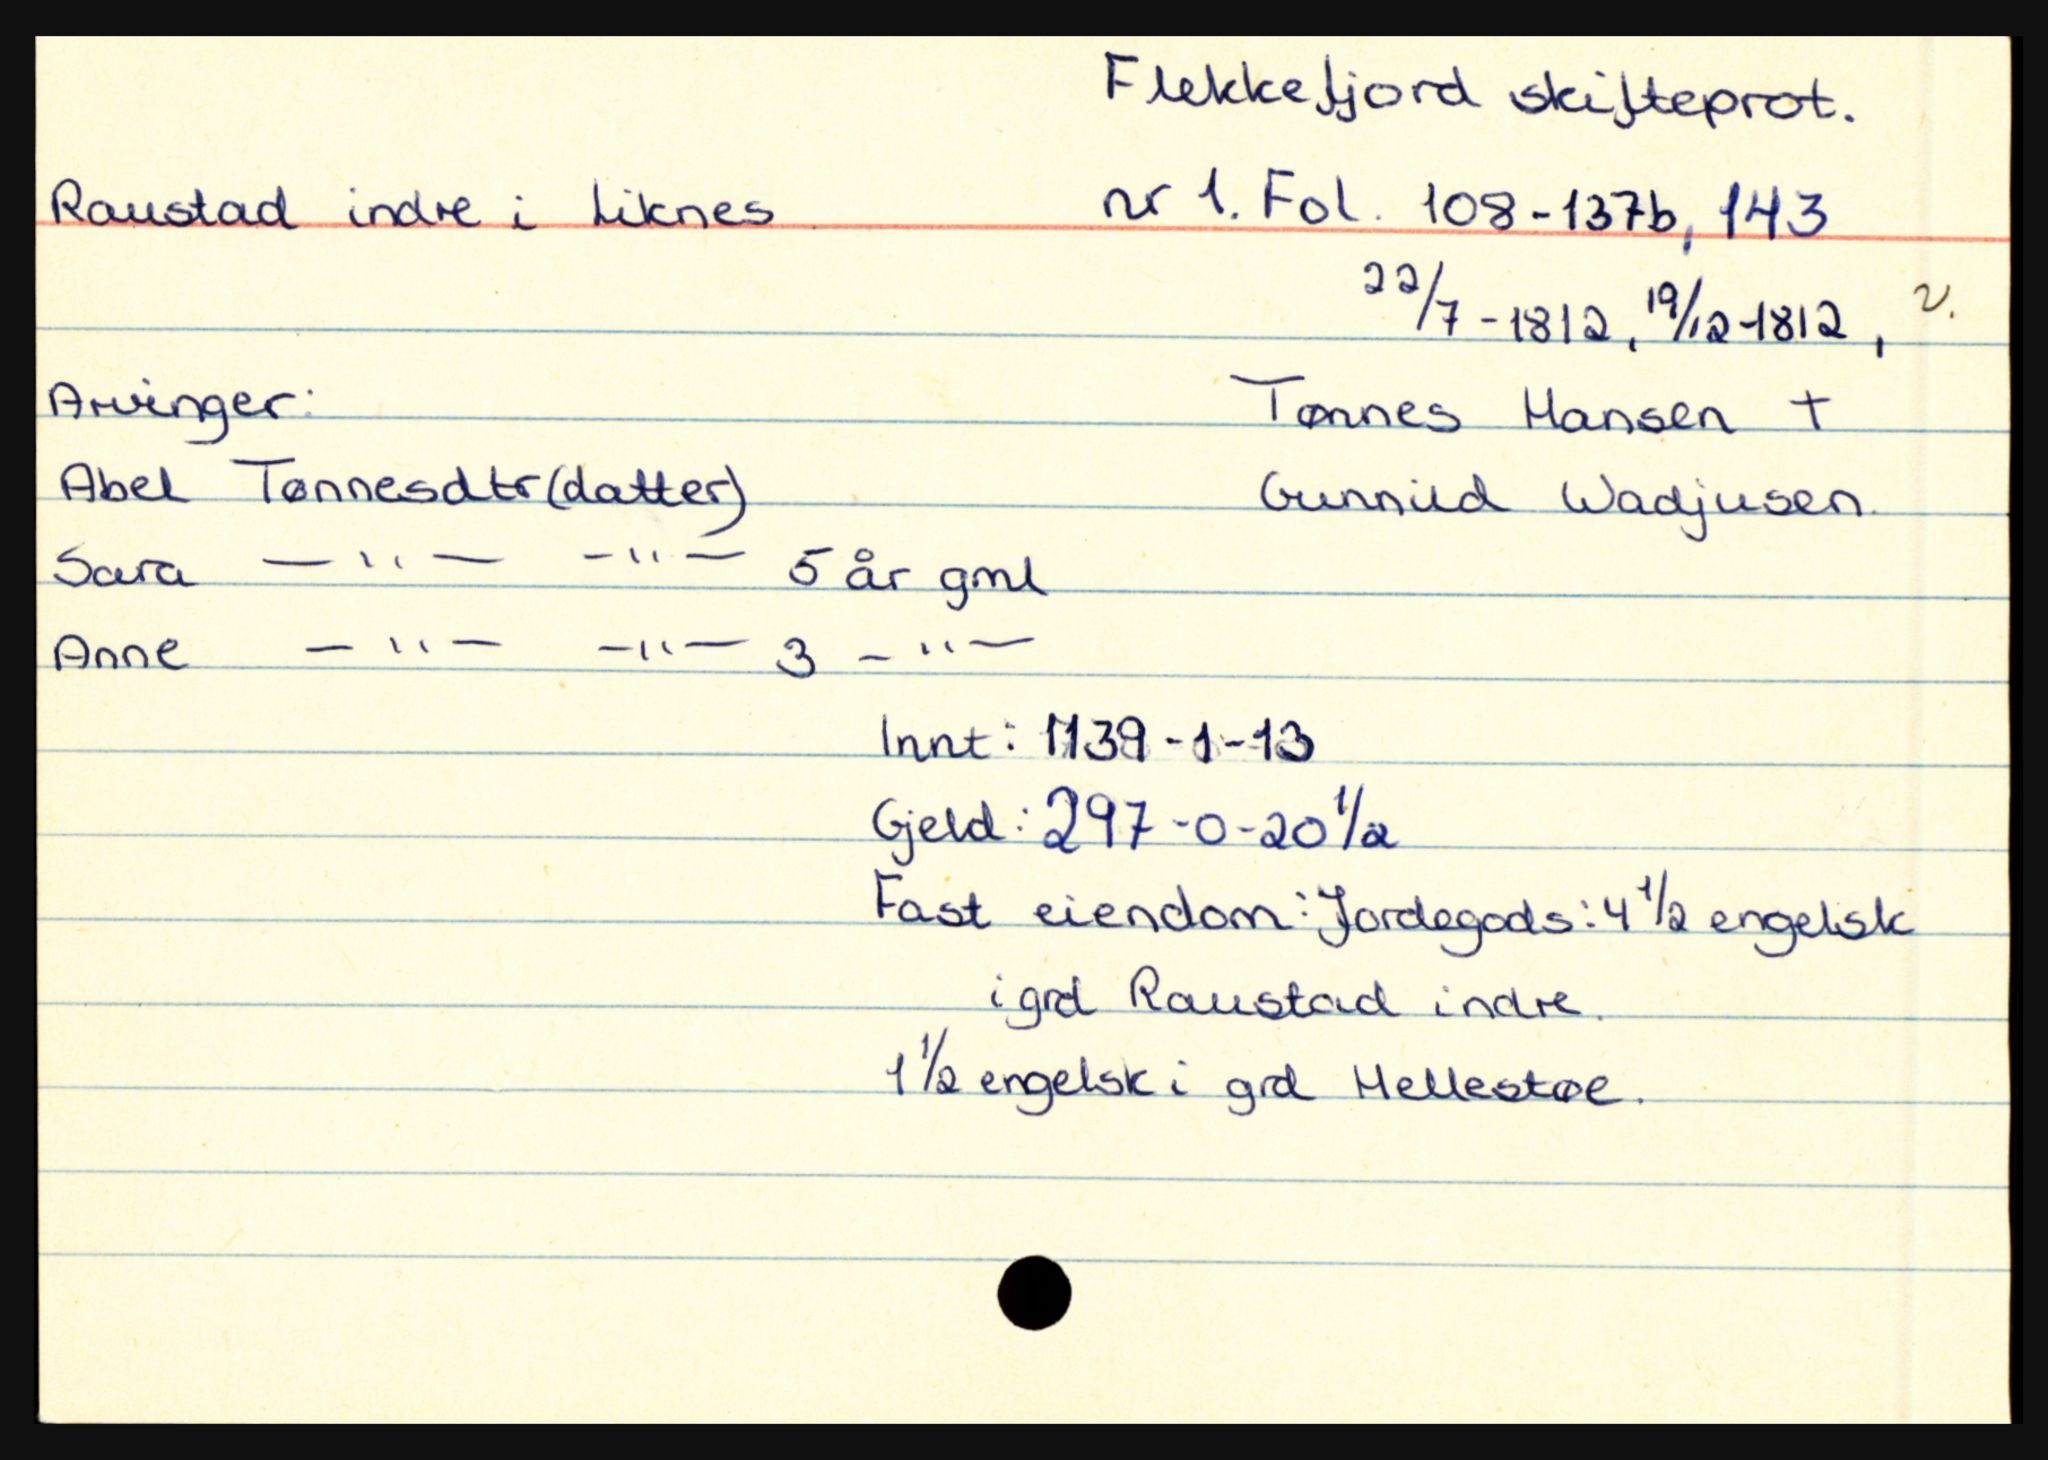 Flekkefjord skifteprot.
Raustad indre i Liknes nr 1. Fol. 108-137b, 143
22/7-1812, 19/12-1812, v.
Arvinger: Tønnes Hansen +
Abel Tønnesdtr (datter) Gunnild Wadjusen.
Sara —"— -"— 5 år gml
Anne —"— -"— 3 -"—
Innt: 1139-1-13
Gjeld: 297-0-20 1/2
Fast eiendom: Jordegods: 4 1/2 engelsk
i grd Raustad indre.
1 1/2 engelsk i grd Hellestøe.